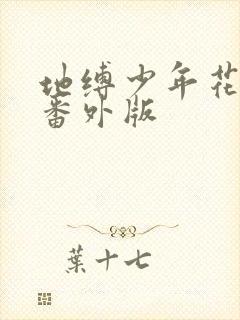 地缚少年花
番外版
葉十七